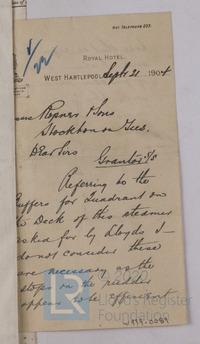 Nat Telephone 223.
1/22
ROYAL HOTEL,
WEST HARTLEPOOL, Sept. 21 1904
Ropner & Sons
Stockton on Tees.
Dear Sirs
Grantor S/S
Referring to the
Buffers for Quadrant on
the Deck of this steamer
asked for by Lloyds I
do not consider these
are necessary as the
stops on the rudder
appear to be efficient
LR
2020
Lloyd's Register
Foundation